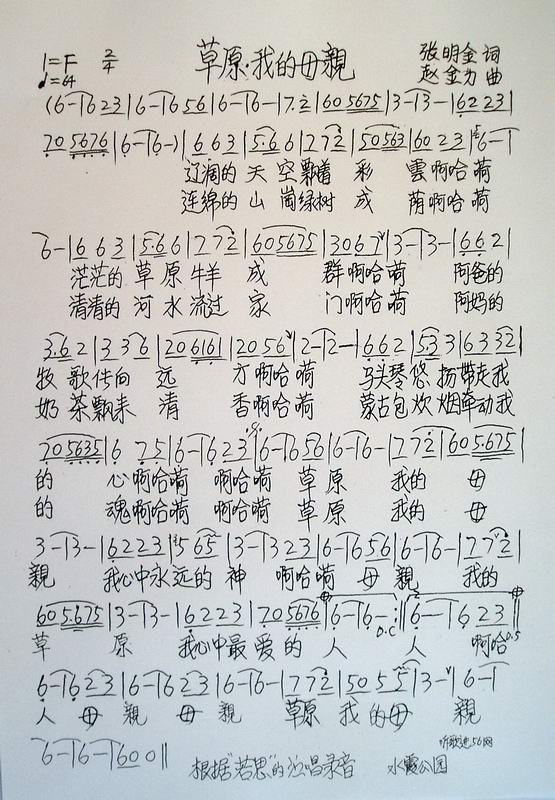 1=F 2/4 草原·我的母親 张明金 词
♩=64 赵金为 曲
(6-|6 23|6-|6 56|6-|6-|7·2|605675|3-|3-|6223|
705676|6-|6-)|663|5·66|772|50563|6023|6-|
辽阔的 天 空飘着 彩 雲啊哈 嗬
连绵的 山 崗绿树 成 荫啊哈 嗬
6-|663|5·66|772|605675|3067|3-|3-|662|
茫茫的 草 原 牛羊 成 群啊哈 嗬 阿爸的
清清的 河 水 流过 家 门啊哈 嗬 阿妈的
3·62|336|206161|2056|2-|2-|662|533|6332|
牧 歌传向 远 方啊哈 嗬 马头琴 悠 扬带走我
奶 茶飘来 清 香啊哈 嗬 蒙古包 炊 烟牵动我
705635|6 75|6-|6 23|6-|6 56|6-|6-|772|605675|
的 心啊哈嗬 啊哈嗬 草 原 我的 母
的 魂啊哈嗬 啊哈嗬 草 原 我的 母
3-|3-|6223|5 65|3-|3 23|6-|6 56|6-|6-|772|
親 我心中永远的 神 啊哈嗬 母 親 我的
605675|3-|3-|6223|705676|6-|6-:|6-|6 23|
D.C D.S
草 原 我心中最 爱的 人 人 啊哈
6-|6 23|6-|6 23|6-|6-|772|505 5|3-|6-|
人 母 親 母 親 草原 我 的母 親
6-|6-|600||
听歌记 56网
根据"若思"的演唱录音 水霞公园